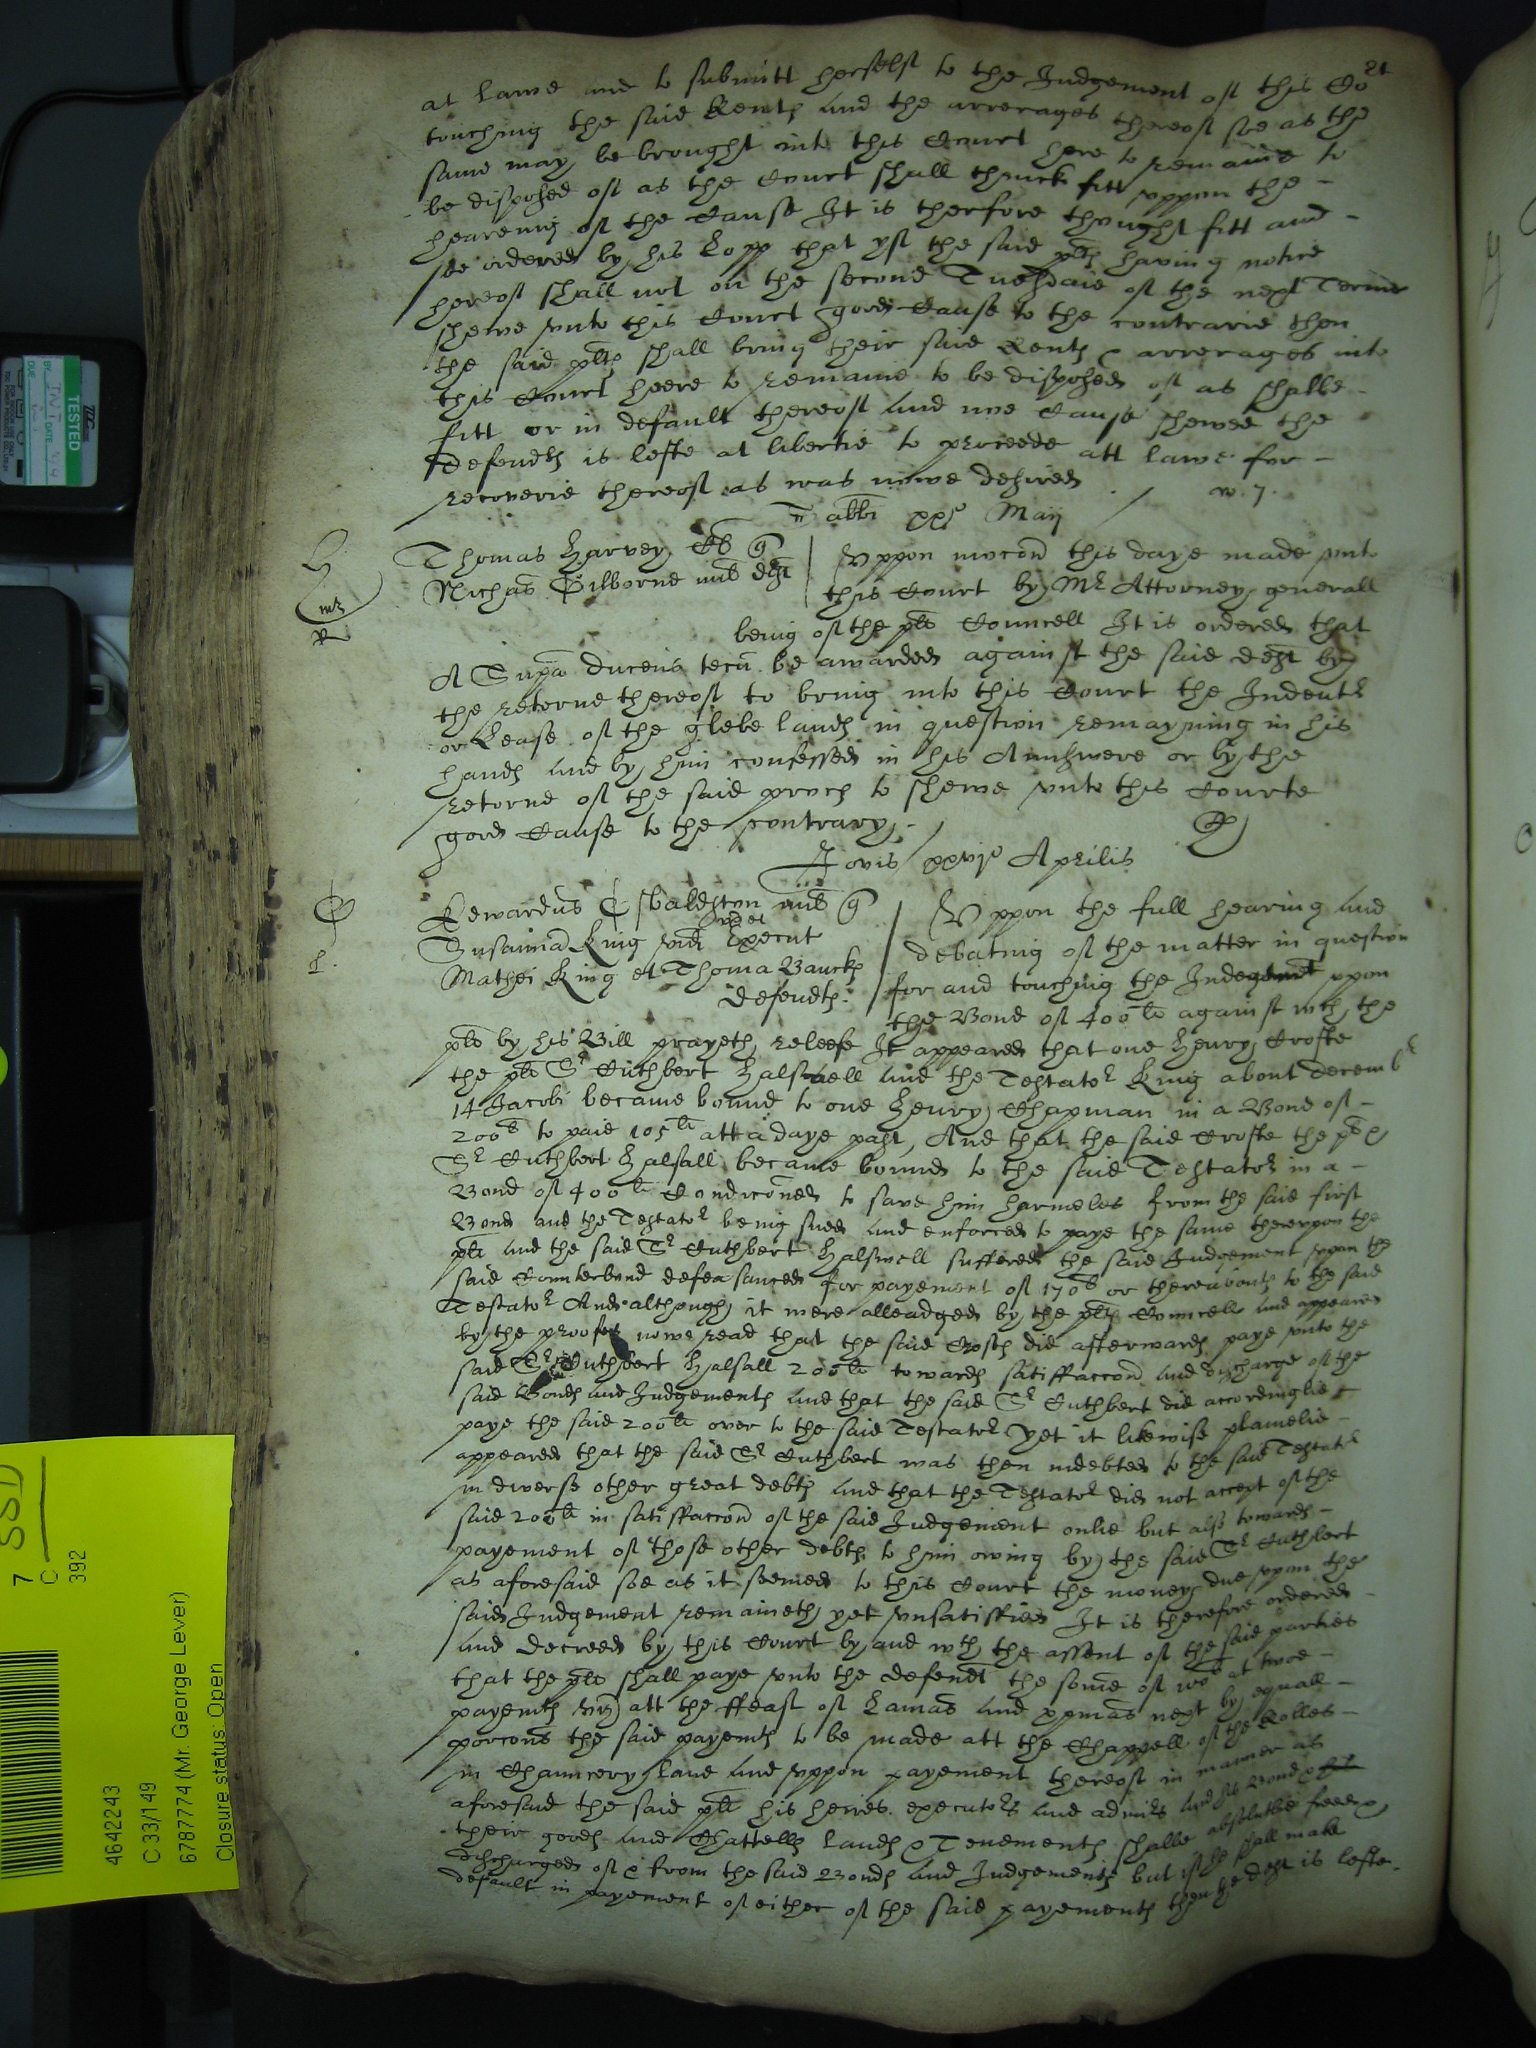 at lawe and to submitt herselfe to the Judgement of this Cort
touching the said Rents and the arrerages thereof soe as the
same may be brought into this Court here to remaine to
be disposed of as the Court shall thinck fitt uppon the
heareing of the Cause It is therfore thought fitt and
soe ordered by his Lopp that yf the said plts having notice
hereof shall not on the second Tuesdaie of the next Terme
shewe unto this Court good Cause to the contrarie then
the said plts shall bring their said Rents & arrerages into
this Court heere to remaine to be disposed of as shalbe
fitt or in default thereof and noe Cause shewed the
defendts is lefte at libertie to proceede att lawe for
recoverie thereof as was nowe desired
Sabbi xxjo Maij
Thomas Harvey
Nichas Gilborne
Uppon mocon this daye made unto
this Court by Mr Attorney generall
being of the plts Councell It is ordered that
A Supa ducens tecu be awarded against the said deft by
the retorne thereof to bring into this Court the Indentr
or Lease of the glebe lands in question remayning in his
hands and by him confessed in his Aunswere or by the
retorne of the said proces to shewe unto this Courte
good Cause to the contrary
Jovis xxvjo Aprilis
Edwardus Osbaldston
Susanna King vid et Execut
Mathei King et Thoma Bancks
defendts
Uppon the full hearing and
debating of the matter in question
for and touching the Judgemt uppon
the Bond of 400li against wch the
plt by his Bill prayeth releefe It appeared that one Henry Crofte
the plt Sr Cuthbert Halsall and the Testator King about Decembr
14 Jacobi became bound to one Henry Chapman in a Bond of
200li to paie 105li att a daye past, And that the said Crofte the plt &
Sr Cuthbert Halsall became bound to the said Testator in a
Bond of 400li Condiconed to save him harmeles from the said first
Bond and the Testator being sued and enforced to paye the same therupon the
plt and the said Sr Cuthbert Halsall suffered the said Judgement upon the
said Counterbond defeasanced for payement of 170li or thereabouts to the said
Testator And although it were alleadged by the plts Councell and appeared
by the proofes nowe read that the said Crofts did afterwards paye unto the
said Sr Cuthbert Halsall 200li towards satisffaccon and discharge of the
said Bonds and Judgements and that the said Sr Cuthbert did accordinglie
paye the said 200li over to the said Testator Yet it likewise plainelie
appeared that the said Sr Cuthbert was then indebted to the said Testatr
in diverse other great debts and that the Testator did not accept of the
said 200li in satisffaccon of the said Judgement onlie but also towards
payement of those other debts to him owing by the said Sr Cuthbert
as aforesaid soe as it seemed to this Court the money due upon the
said Judgement remaineth yet unsatisfied It is therefore ordered
and decreed by this Court by and wth the assent of the said parties
that the plt shall paye unto the defendt the some of 100li at twoe
payemts viz att the ffeast of Lamas and xpmas next by equall
porcons the said payemts to be made att the Chappell of the Rolles
in Chauncery lane and uppon payement thereof in manner as
aforesaid the said plt his heires executors and admrs and his Bond
their goods and Chattells lands & Tenements shalbe absolutlie freed &
discharged of & from the said Bonds and Judgements but if he shall make
default in payement of either of the said payements then the deft is lefte
TESTED
4642243
C 33/149
6787774 (Mr. George Lever)
Closure status: Open
7
C
392
SSD